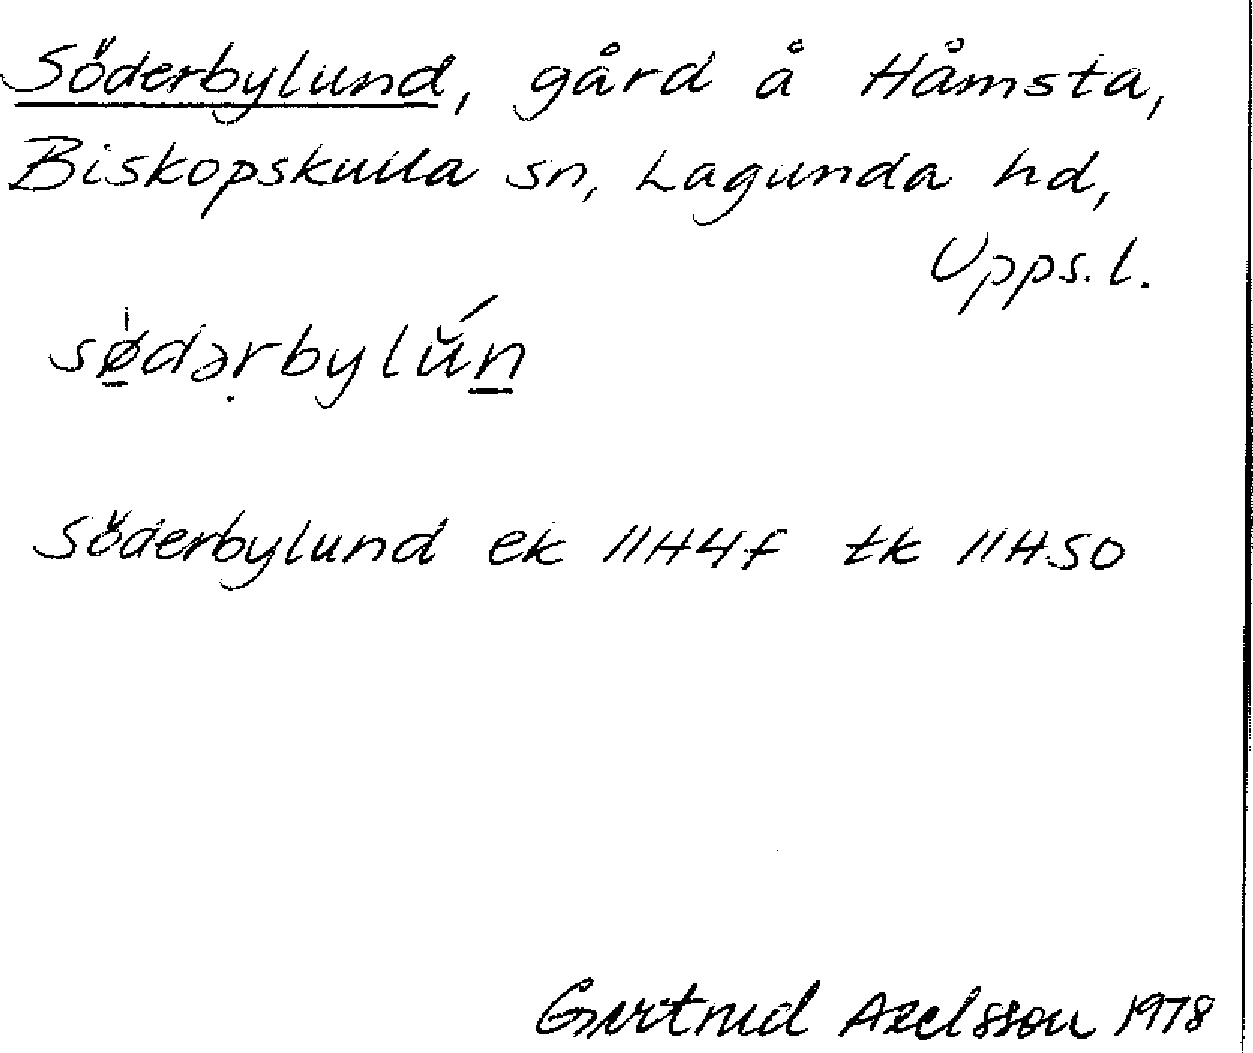 Söderbylund, gård å Håmsta,
Biskopskulla sn, Lagunda hd,
Upps. l.
sø̠̍dəṛbylŭ́n̠
Söderbylund ek 11H4f tk 11HSO
Gertrud Axelsson 1978